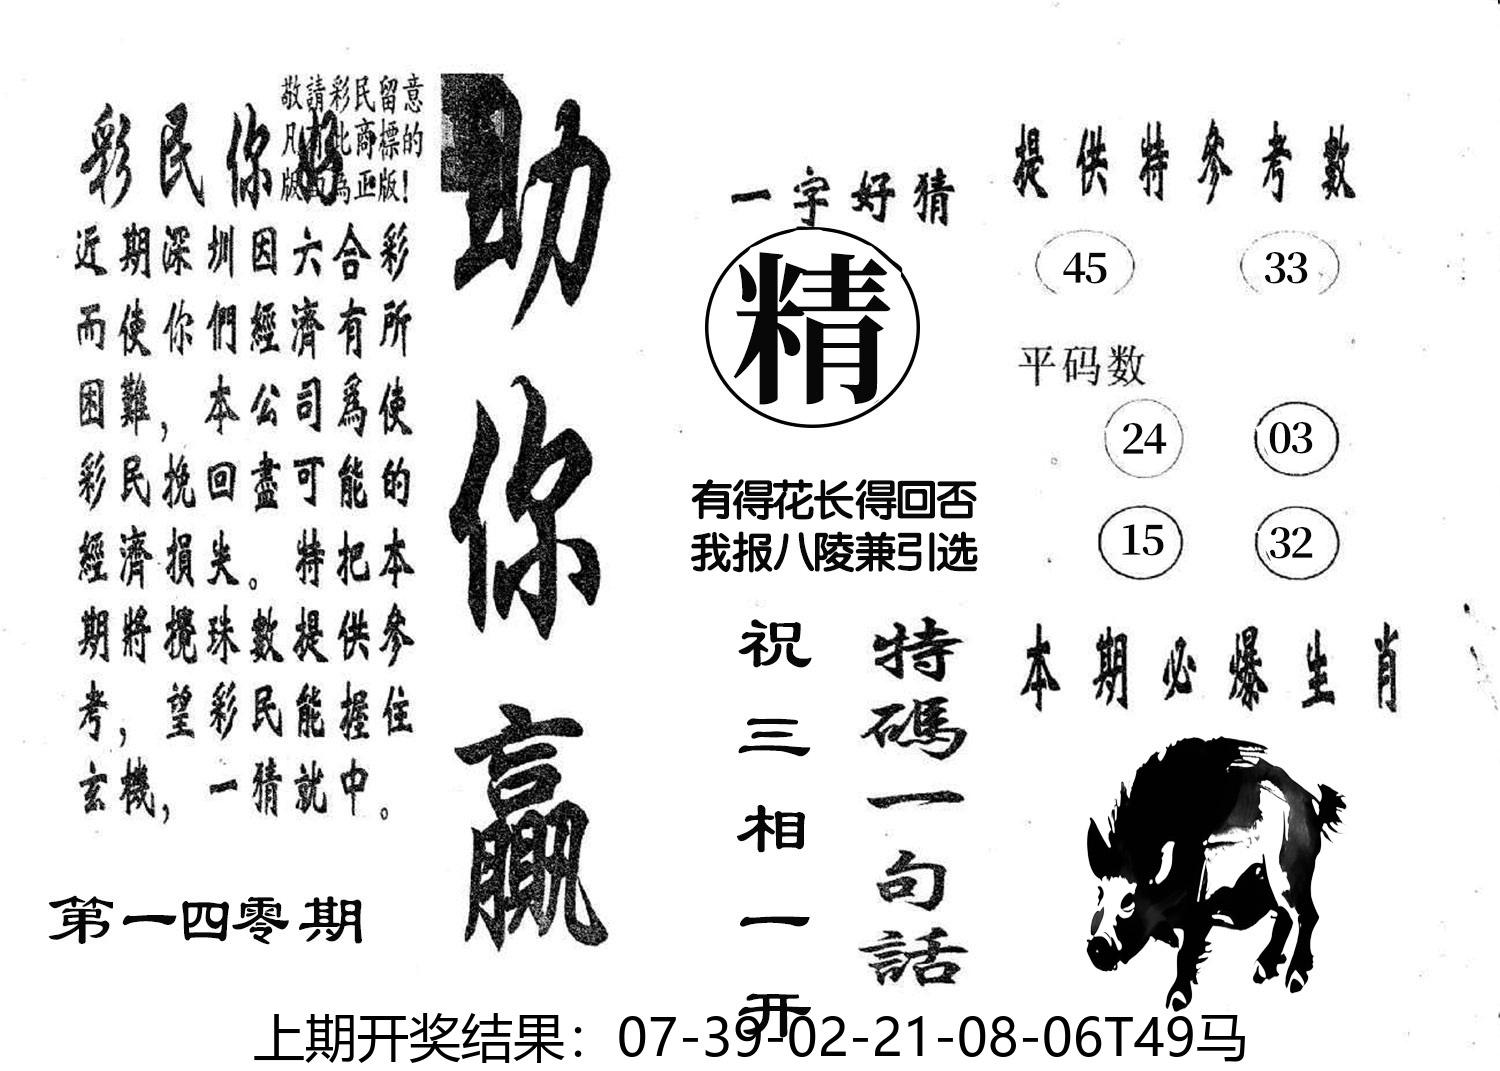 敬請彩民留意
凡有此商標的
版面為正版！
彩民你好
近期深圳因六合彩
而使你們經濟有所
困難，本公司爲使
彩民挽回盡可能的
經濟損失。特把本
期將攪珠數提供參
考，望彩民能握住
玄機，一猜就中。
第一四零期
助你贏
一字好猜
精
有得花长得回否
我报八陵兼引选
特碼一句話
祝三相一开
提供特參考數
45 33
平码数
24 03
15 32
本期必爆生肖
上期开奖结果：07-39-02-21-08-06T49马